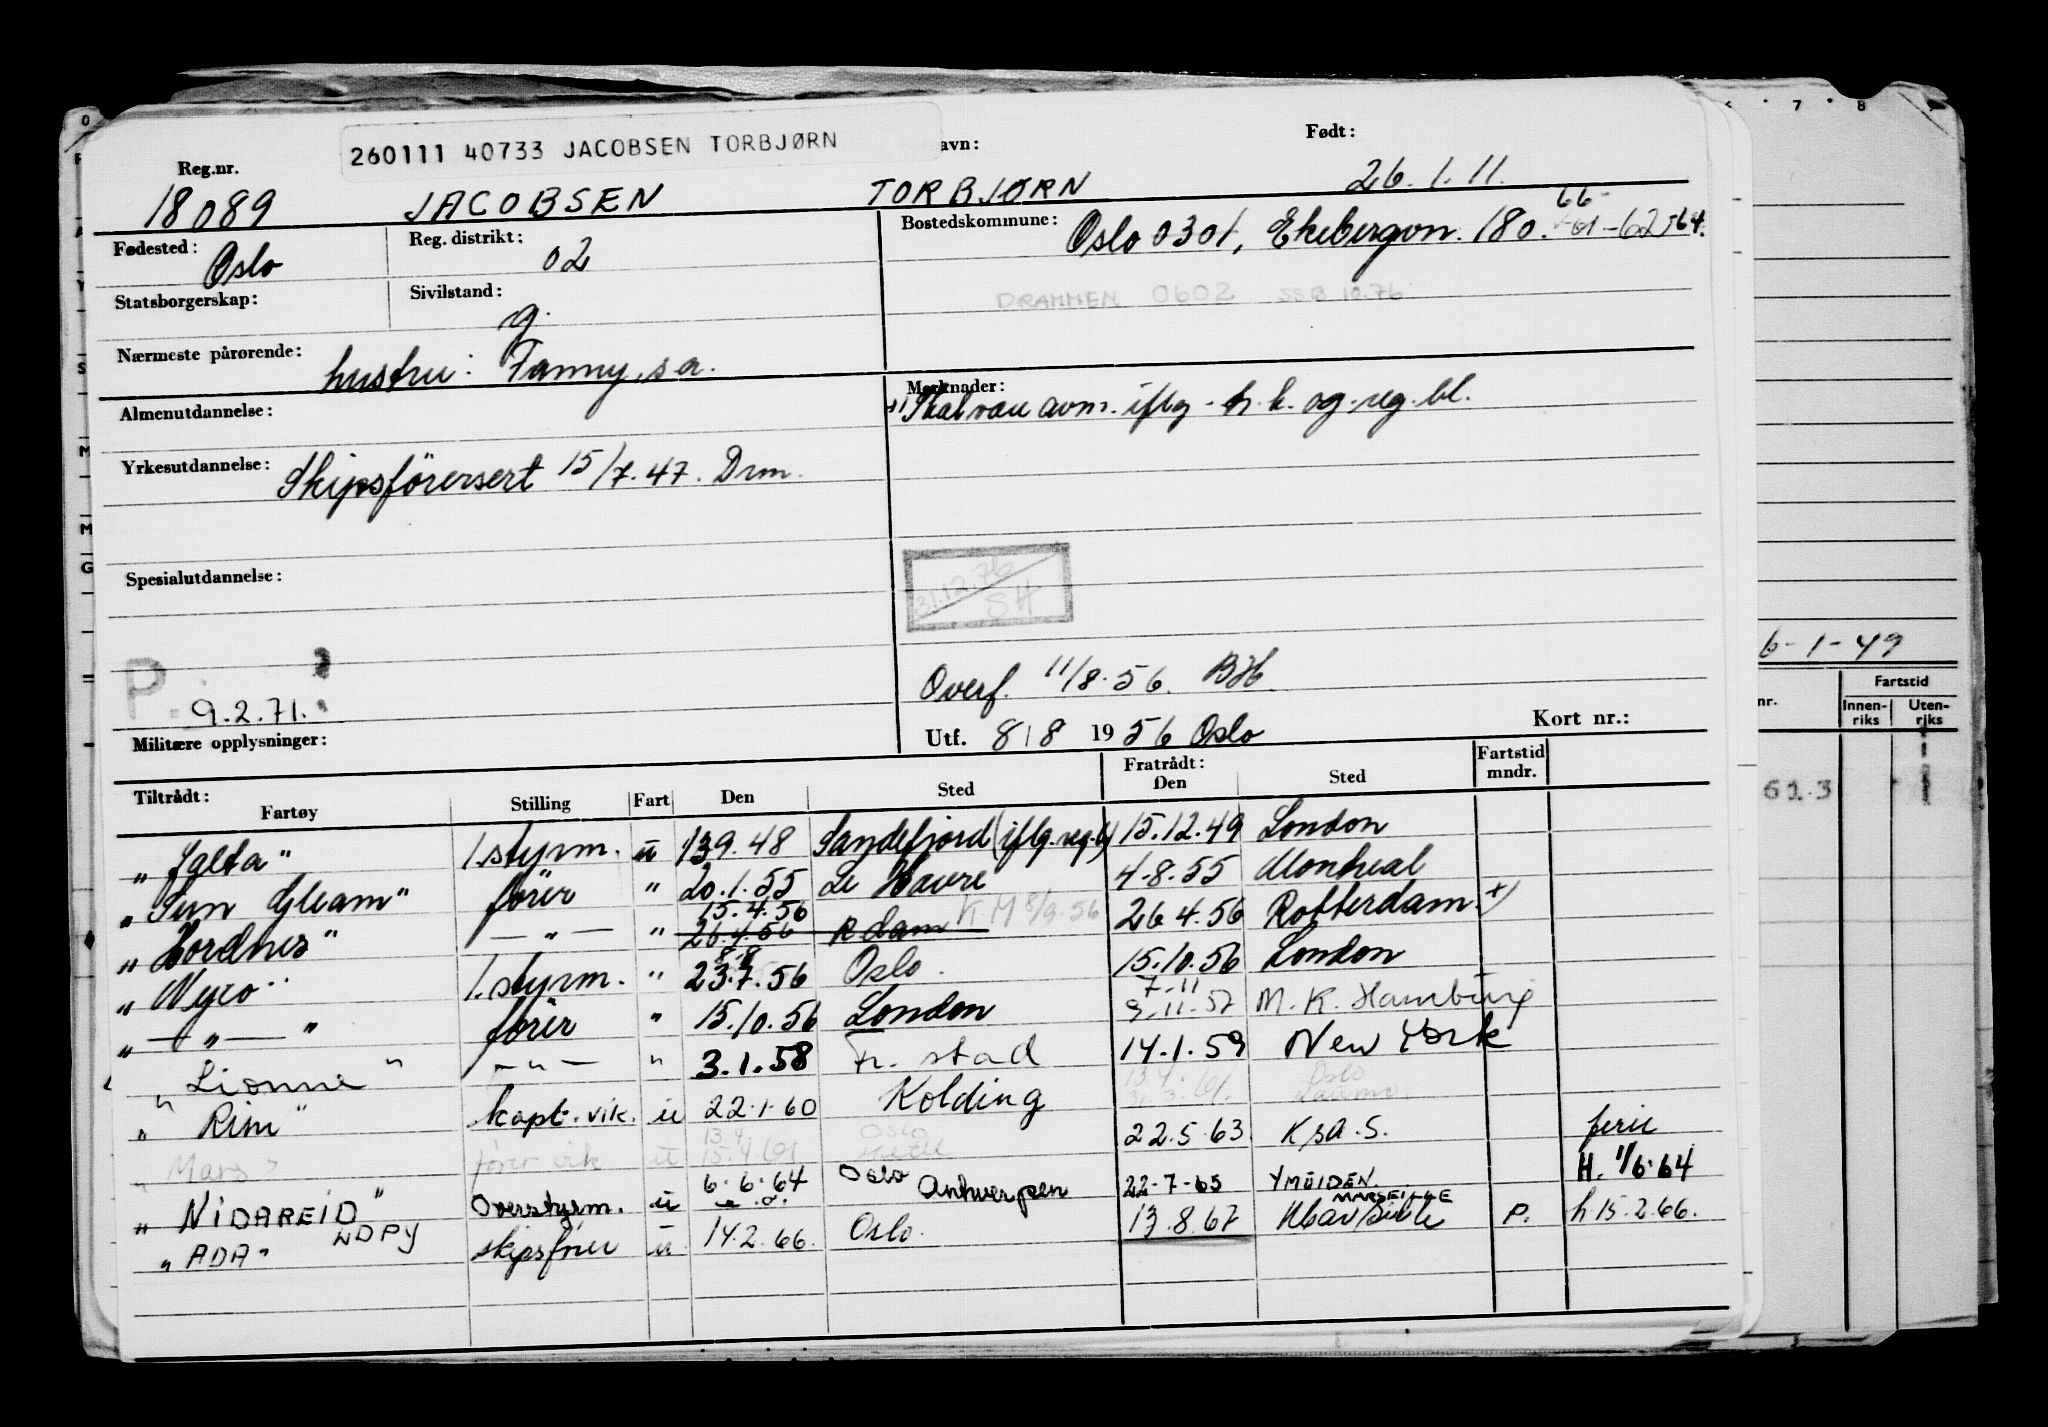 260111 40733 JACOBSEN TORBJØRN
avn:
Født:
Reg.nr.
18089 JACOBSEN TORBJØRN 26.1.11.
Fødested: Oslo
Reg. distrikt: 02
Bostedskommune: Oslo 0301, Ekebergvn. 180. 61-62-64.
66-
Statsborgerskap:
Sivilstand: g.
DRAMMEN 0602 SSB 10.76
Nærmeste pårørende: hustru: Fanny, s.a.
Almenutdannelse:
Merknader:
+) Skal være avm. iflg. h.k. og reg.bl.
Yrkesutdannelse: Skipsförersert 15/7.47. Drm.
Spesialutdannelse:
31.12.76
SH
P.
9.2.71.
Overf. 11/8.56. BH
Utf. 8/8 1956 Oslo
Kort nr.:
Militære opplysninger:
Tiltrådt: Fartøy Stilling Fart Den Sted Fratrådt: Den Sted Fartstid mndr.
"Jalta" 1.styrm. u 13.9.48 Sandefjord (iflg.reg.b) 15.12.49 London
"Sun Gleam" förer " 20.1.55 Le Havre 4.8.55 Montreal
15.4.56 K.M 8/9.56
"Hordnes" — " — " 26.4.56 Rdam 26.4.56 Rotterdam +)
8.8
"Nyco" 1.styrm. " 23.7.56 Oslo. 15.10.56 London
7.11
" — " — " förer " 15.10.56 London 9.11.57 M.K. Hamburg
"Lionne" — " — " 3.1.58 Fr.stad 14.1.59 New York
13.4.61. Oslo
"Rim" kapt.vik. u 22.1.60 Kolding
13.4. Oslo
"Mars" fører vik u 15.4.61 22.5.63 K s.a.S. ferie
6.6.64 Oslo
H. 1/6.64
"NIDAREID" Overstyrm. u Antwerpen 22-7-65 YMUIDEN.
LDPY
MARSEILLE
"ADA" skipsfører u 14.2.66. Oslo. 13.8.67 P. h.15.2.66.
6-1-49
nr.
Fartstid
Innen-riks
Uten-riks
61.3